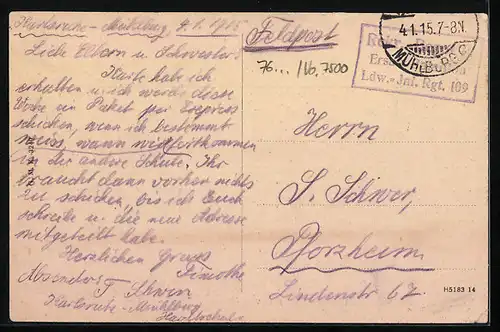 Karlsruhe-Mühlburg 4.1.1915
Liebe Eltern u. Schwester!
Karte habe ich
erhalten u. ich werde diese
Woche ein Paket per Express
schicken, wenn ich bestimmt
weiss, wann wir fortkommen
in die andere Schule. Ihr
braucht dann vorher nichts
zu schicken, bis ich Euch
schreibe u. die neue Adresse
mitgeteilt habe.
Herzlichen Gruss
Timothe
Absender: T. Schwer
Karlsruhe-Mühlburg
Feldpost
76... / 16. 7500
4.1.15.7-8N.
MÜHLBURG
Ldw.-Inf. Rgt. 109
Herrn
S. Schwer,
Pforzheim
Lindenstr 67
H5183 14